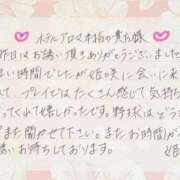 ホテルアロマ本指の貴方様
昨日はお誘い頂きありがとうございました
い時間でしたが姫咲に会いに来
して、プレイではたくさん感じて気持ち
ってくれて嬉しかったです。野球はどう
また聞かせて下さい。またお時間が
誘いお待ちしております。